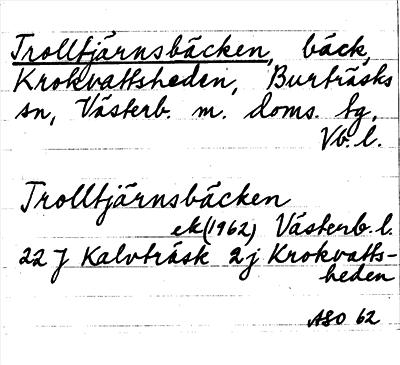 Trolltjärnsbäcken, bäck,
Krokvattsheden, Burträsks
sn, Västerb. m. doms. tg,
Vb. l.
Trolltjärnsbäcken
ek (1962) Västerb. l.
22 J Kalvträsk 2 j Krokvatts-
heden
ASO 62